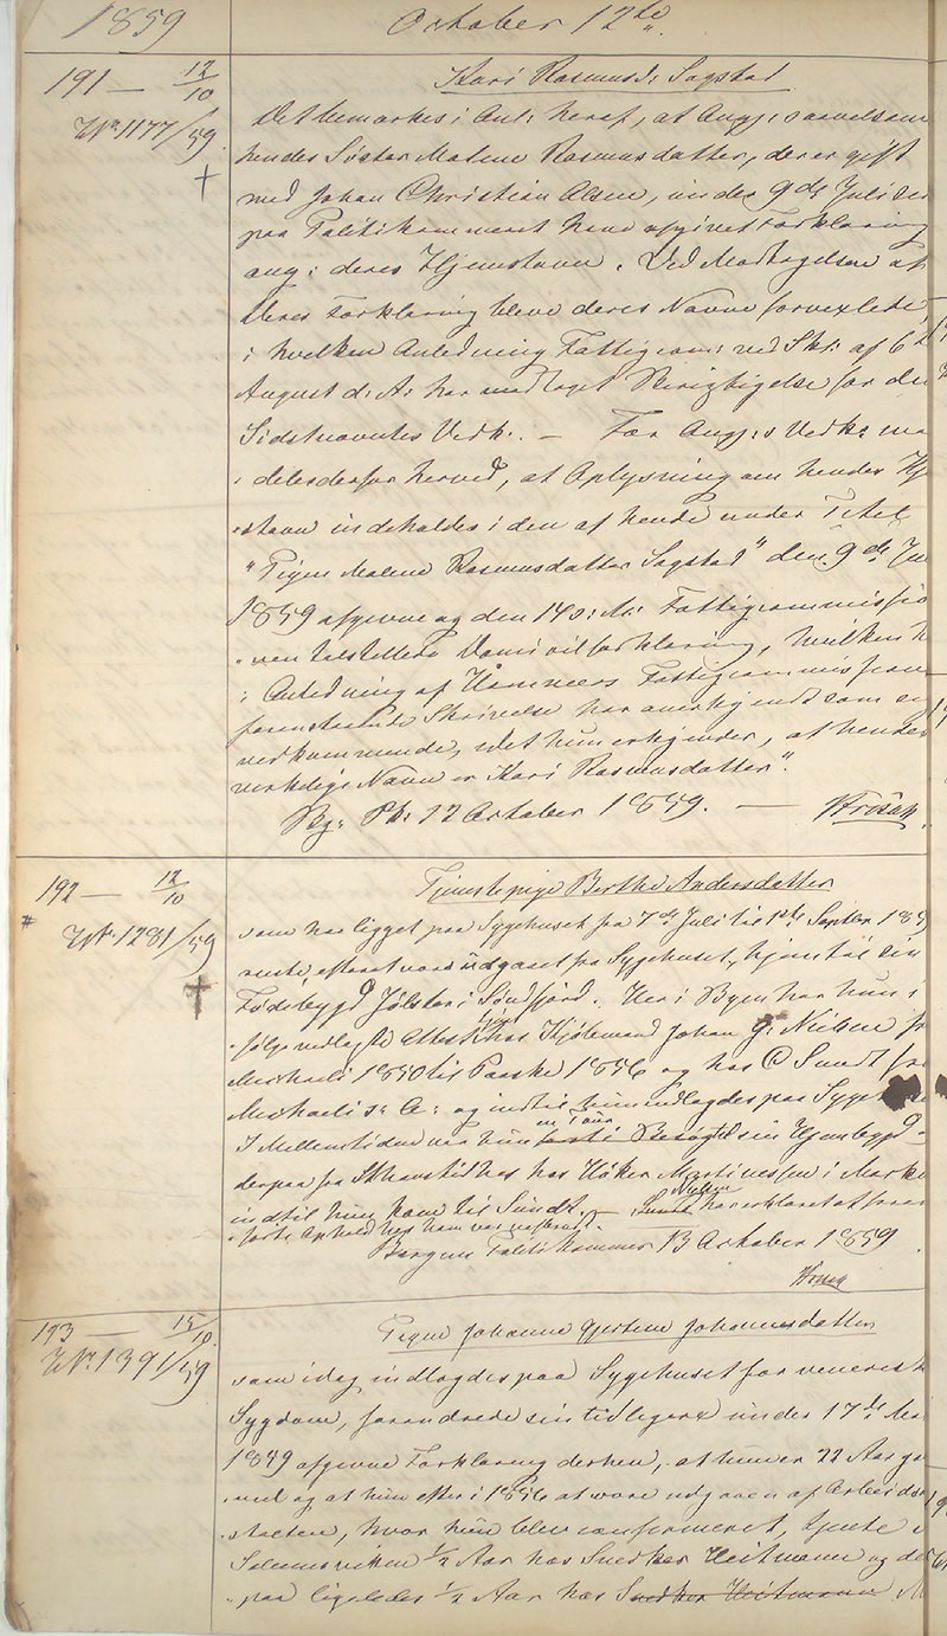 1859 October 12te
191 — 12/10 Kari Rasmusd: Sagstad
No 1177/59 Det bemærkes i Anl: heraf, at Angj: saavelsom
hendes Søster Malene Rasmusdatter, der er gift
med Johan Christian Olsen, under 9de Juli
paa Politikammeret have afgivet Forklaring
ang: deres Hjemstavn. Ved Modtagelsen af
deres Forklaring bleve deres Navne forvexlede,
i hvilken Anledning Fattigcom: ved Skr: af 6te
August d: A: har modtaget Berigtigelse for den
Sidstnævntes Vedk:. — For Angj:s Vedk:
deles derfor herved, at Oplysning om hendes Hj
stavn indeholdes i den af hende under Titel
"Pigen Malene Rasmusdatter Sagstad" den 9de Ju
1859 afgivne og den 14 s: M: Fattigcommissio
nen tilstillede Domicilforklaring, hvilken
i Anledning af Fattigcommission
foranstaaende Skrivelse har anerkjendt som
vedkommende, idet hun erkjender, at hendes
virkelige Navn er Kari Rasmusdatter".
Bg: Pk: 12 October 1859. —
192 — 12/10 Tjenestepige Berthe Andersdatter
No 1281/59 som har ligget paa Sygehuset fra 7de Juli til 1ste Septbr 1859
reiste, efterat være udgaaet fra Sygehuset, hjem til sin
Fødebygd Jølster i Søndfjord. Her i Byen har hun i
følge vedlagte Attest tjent hos Kjøbmand Johan G. Nielsen fr
Michaeli 1850 til Paaske 1856 og hos C Sundt fra
Michaeli s: A: og indtil hun indlagdes paa Syge
I Mellemtiden var hun en Tour i Besøg til sin Hjembygd
derpaa hos Høker Martinussen i Marke
indtil hun kom til Sundt. — Nielsen har erklæret at
første Ophold hos ham var uafbrudt.
Bergens Politikammer 13 October 1859
193 — 15/10 Pigen Johanne Gjertine Johannesdatter
No 1391/59 som idag indlagdes paa Sygehuset for venerisk
Sygdom, forandrede sin tidligere under 17de
1859 afgivne Forklaring derhen, at hun er 22 Aar ga
mel og at hun efter i 1856 at være udgaaen af Arbeidsan
stalten, hvor hun blev confirmeret, tjente i
Solemsviken 1/2 Aar hos Snedker Heitmann og der
paa ligeledes 1/2 Aar hos Snedker Heitmann